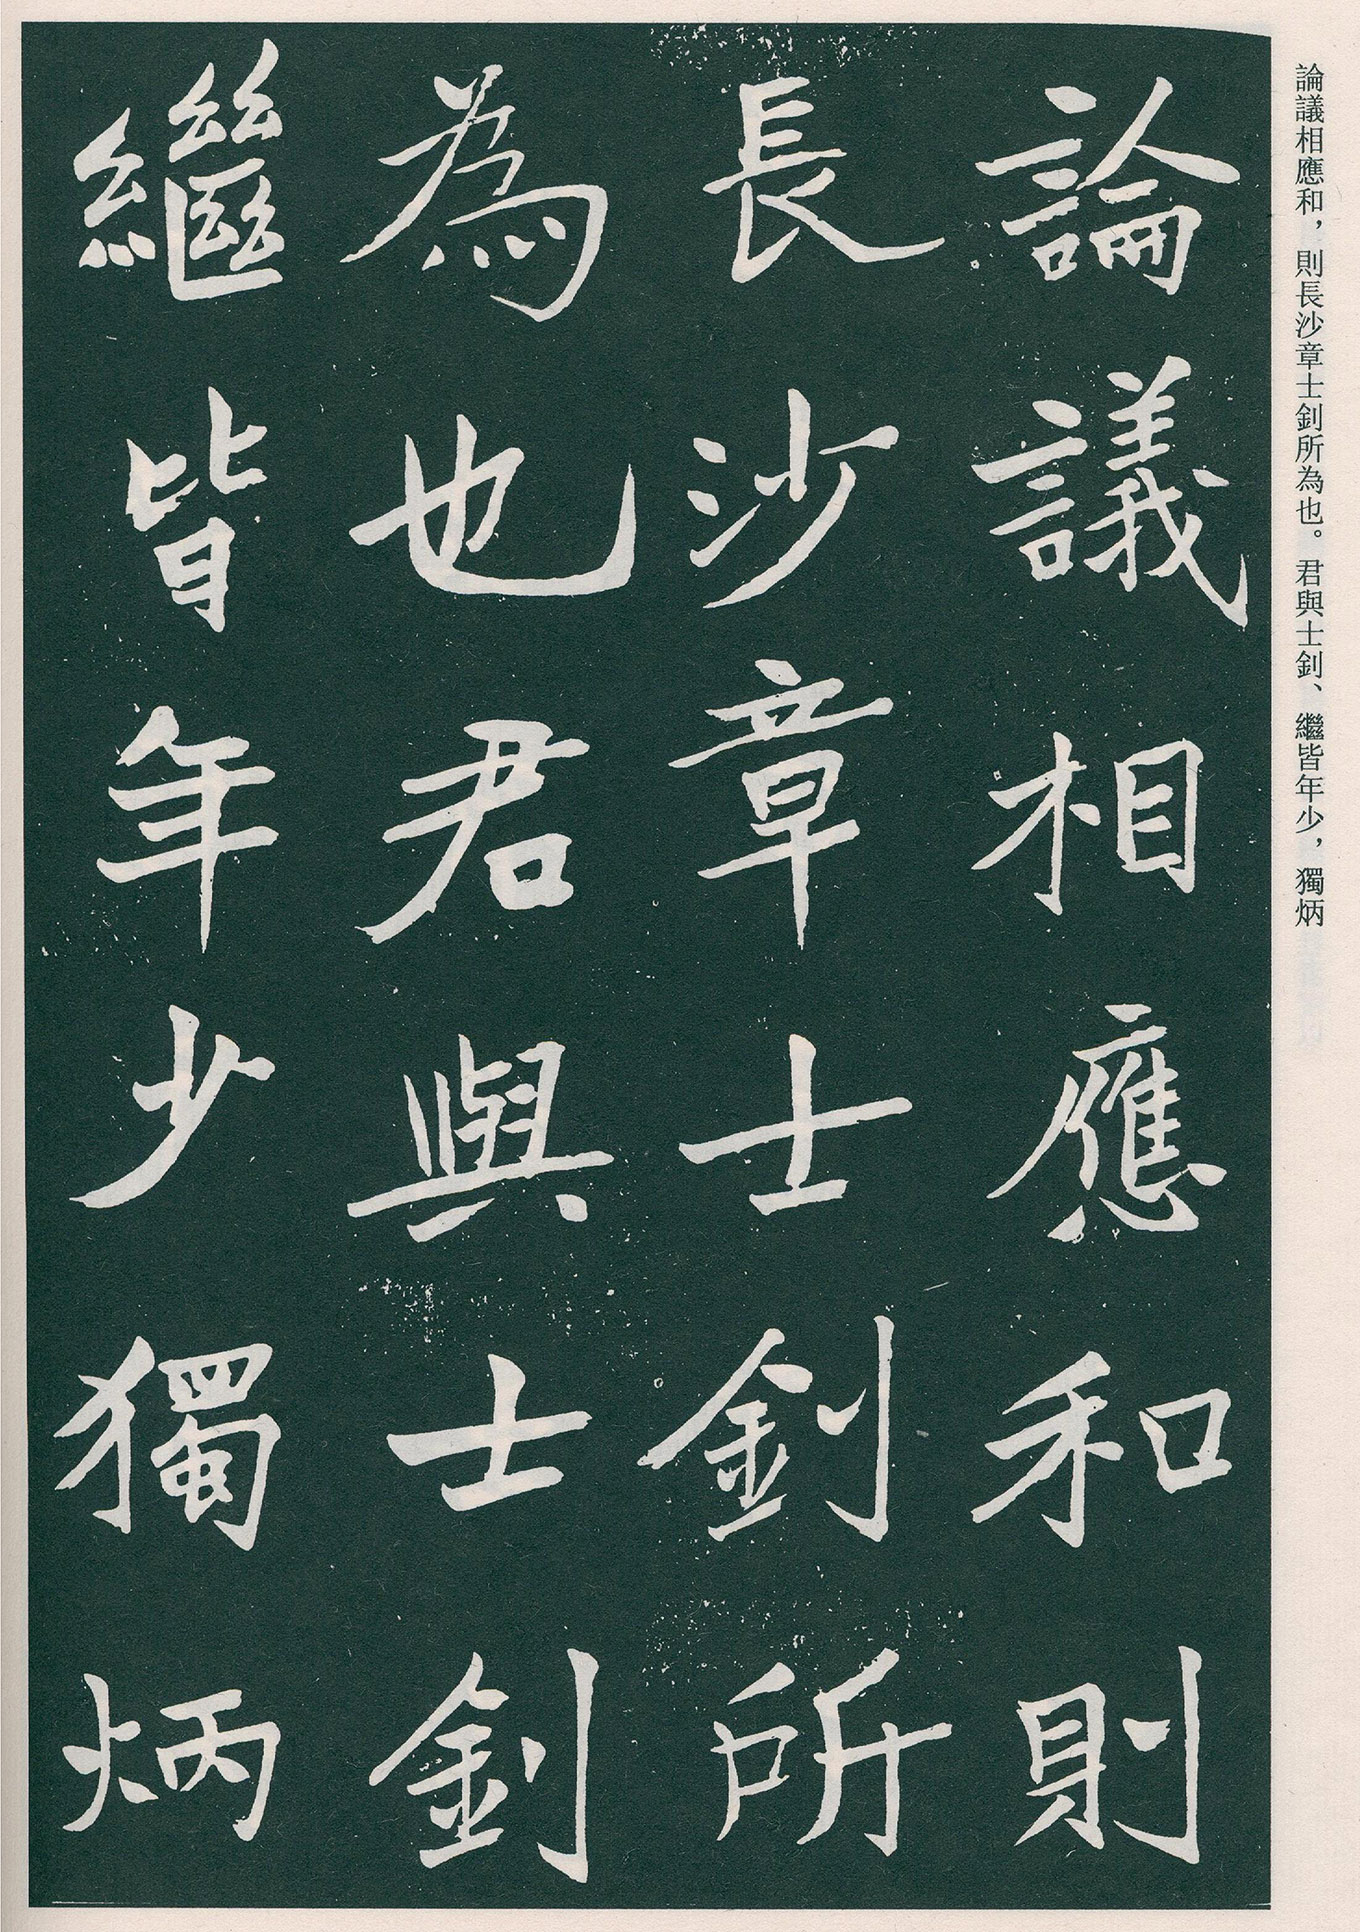 論議相應和，則長沙章士釗所為也。君與士釗、繼皆年少，獨炳
論議相應和則
長沙章士釗所
為也君與士釗
繼皆年少獨炳